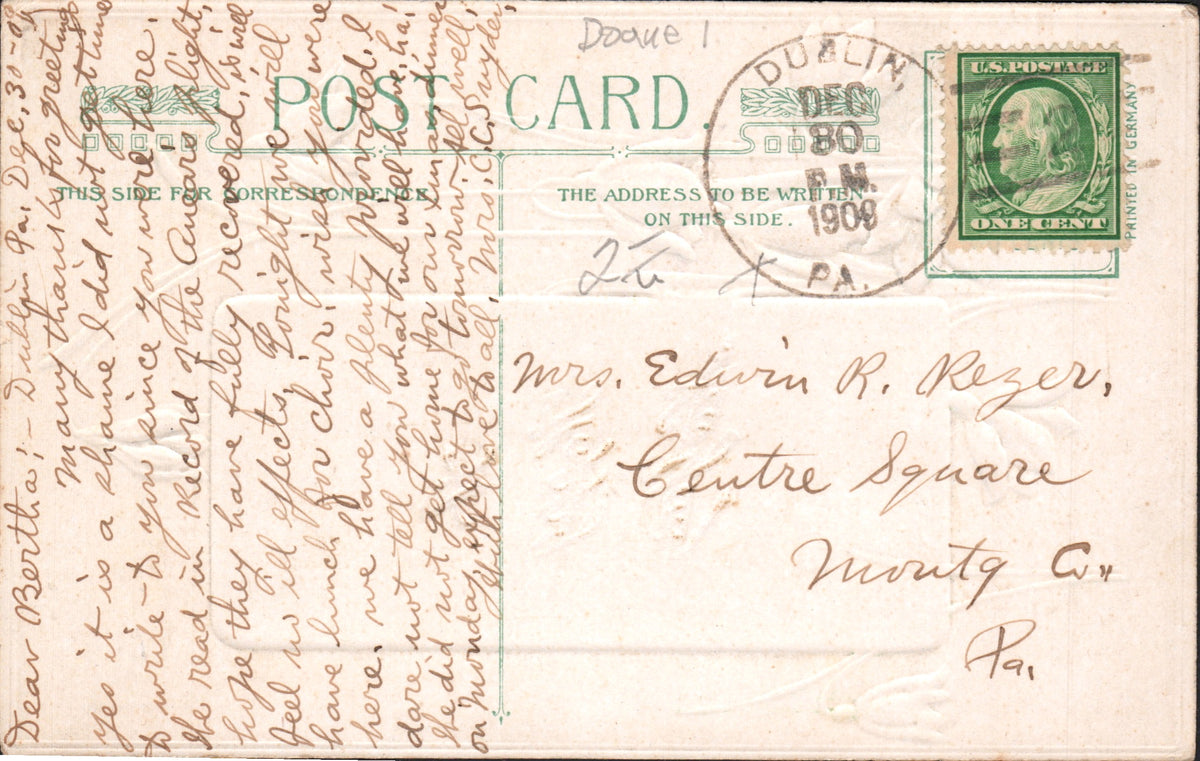 Doane 1
POST CARD.
THIS SIDE FOR CORRESPONDENCE.
THE ADDRESS TO BE WRITTEN
ON THIS SIDE.
DUBLIN,
DEC
30
P.M.
1909
PA.
U.S. POSTAGE
ONE CENT
PRINTED IN GERMANY
X
Mrs. Edwin R. Rezer,
Centre Square
Montg Co.,
Pa.
Dear Bertha:- Dublin Pa. Dec. 30-09
Many thanks for greetings
yes it is a shame I did not get time
to write to you since you were here.
We read in Record of the Auears plight,
hope they have fully recovered, is well
feel no ill effects, Tonight we shall
have lunch for choir, wish you were
here, we have a plenty provided. I
dare not tell you what we will have, ha,
We did not get home for our Xmas dinner
on Monday, expect to go tomorrow. All well,
love to all, Mrs. C. C. Snyder